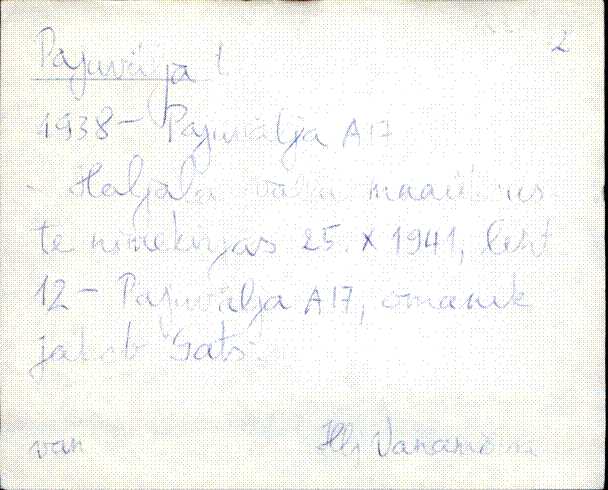 2
Pajuvälja t
1938 – Pajuvälja A17
Haljala valla maaüksus
te nimekirjas 25. X 1941, leht
12 – Pajuvälja A17, omanik
Jakob Sats.
van Hlj Vanamõisa